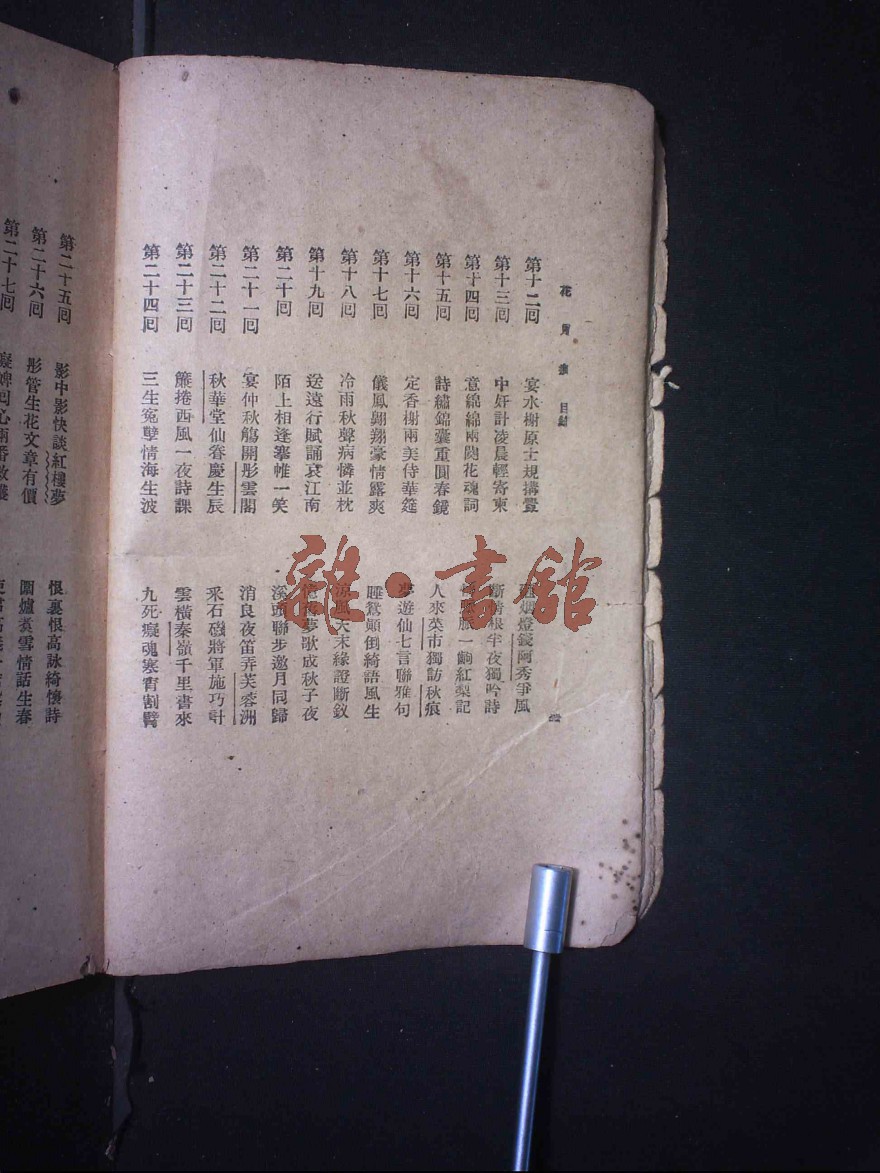 花月痕 目錄
第十二回 宴水榭原士規搆釁 砸煙燈錢阿秀爭風
第十三回 中奸計凌晨輕寄柬 斷情根半夜獨吟詩
第十四回 意綿綿兩闋花魂詞 一齣紅梨記
第十五回 詩繡錦囊重圓春鏡 人來菜市獨訪秋痕
第十六回 定香榭兩美侍華筵 夢遊仙七言聯雅句
第十七回 儀鳳翱翔豪情露爽 睡鴛顛倒綺語風生
第十八回 冷雨秋聲病憐並枕 涼風天末緣證斷釵
第十九回 送遠行賦誦哀江南 憶舊夢歌成秋子夜
第二十回 陌上相逢搴帷一笑 溪頭聯步邀月同歸
第二十一回 宴仲秋觴開彤雲閣 消良夜笛弄芙蓉洲
第二十二回 秋華堂仙眷慶生辰 采石磯將軍施巧計
第二十三回 簾捲西風一夜詩課 雲橫秦嶺千里書來
第二十四回 三生冤孽情海生波 九死癡魂寒宵割臂
第二十五回 影中影快談紅樓夢 恨裏恨高詠綺懷詩
第二十六回 彤管生花文章有價 圍爐煑雪情話生春
第二十七回 癡婢回心兩番救護
雜·書館